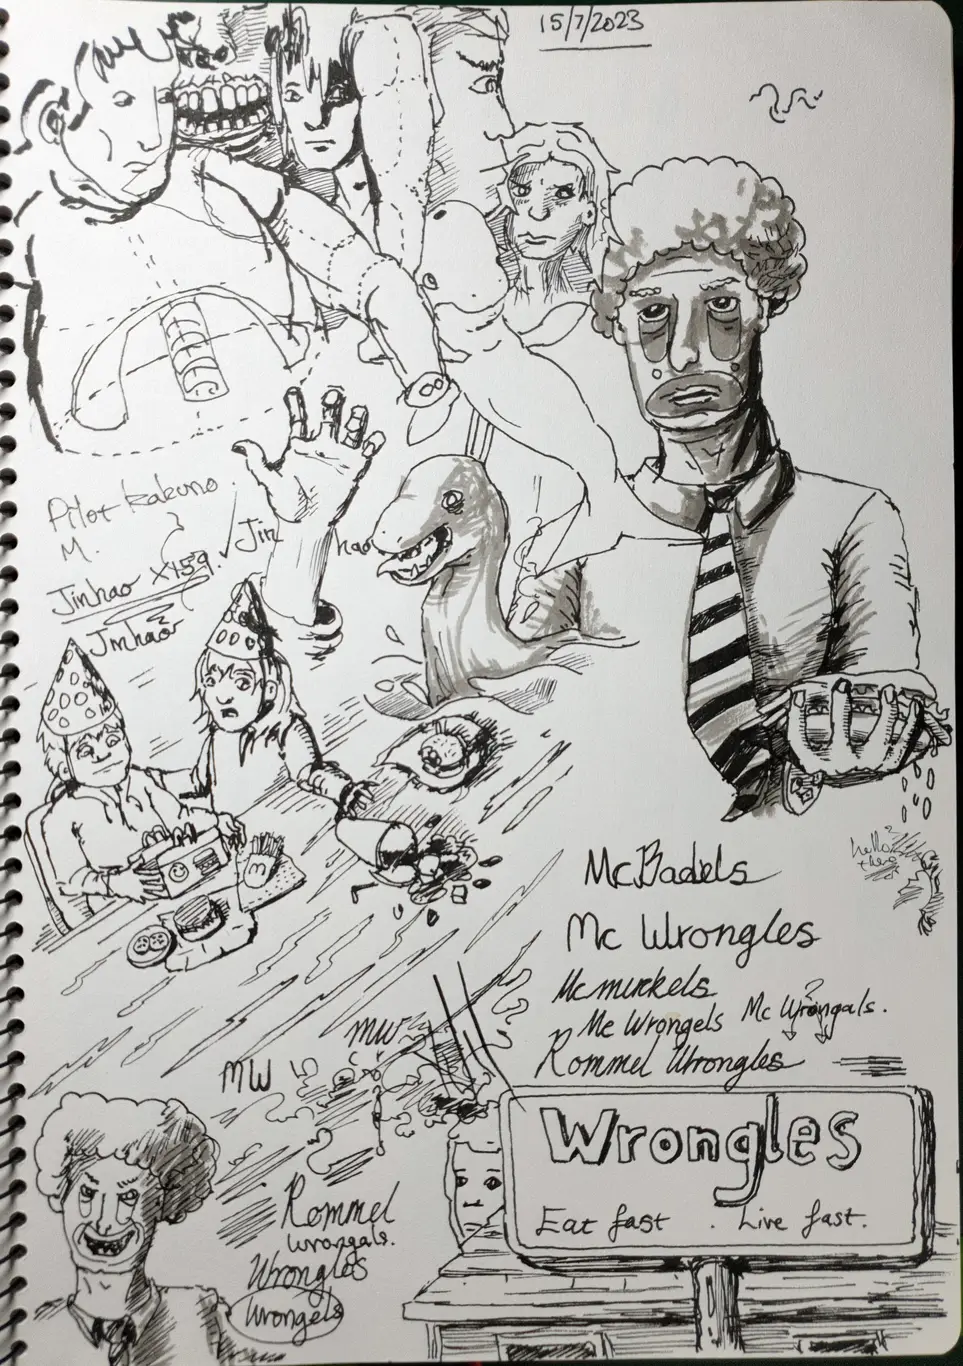 15/7/2023
Pilot Kakuno.
M.
Jinhao X159. ✓ Jinhao
Jinhao
McBadels
Mc Wrongles
Mcmuckels
Mc Wrongels Mc Wrongals.
Rommel Wrongles
MW
MW
hello
there
Wrongles
Eat fast . Live fast.
Rommel
Wrongals.
Wrongles
Wrongels